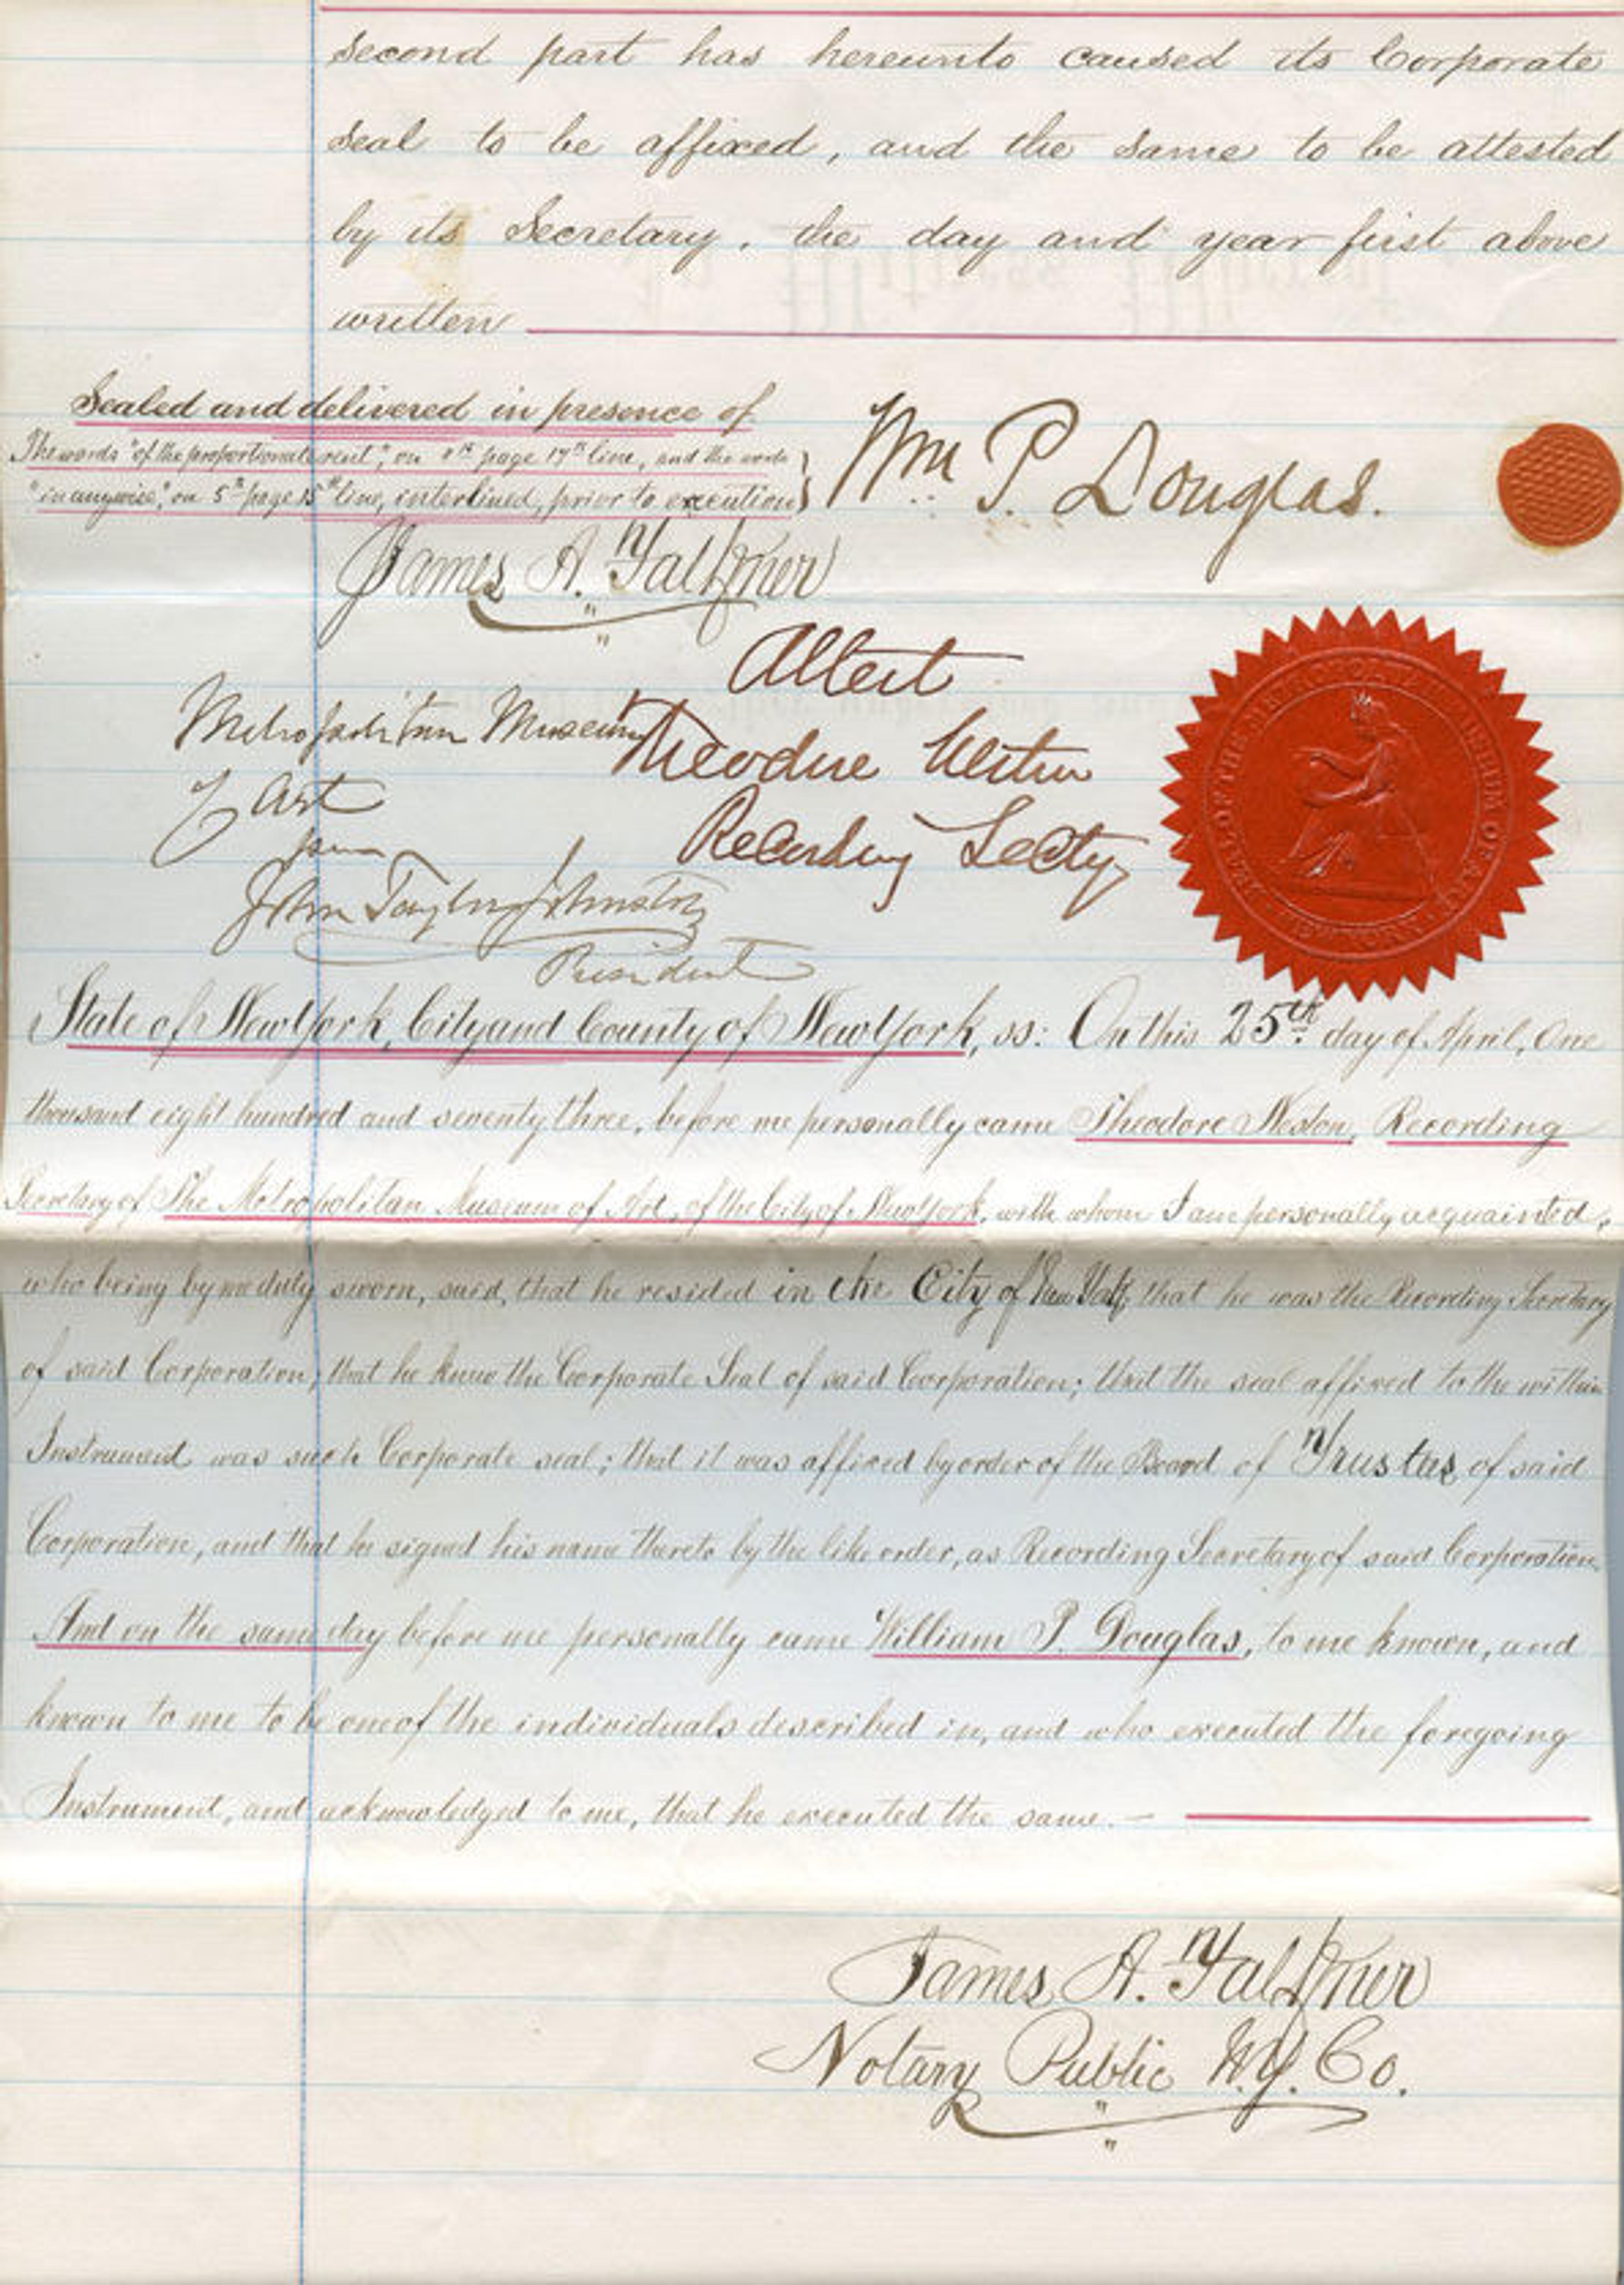 second part has hereunto caused its Corporate
Seal to be affixed, and the same to be attested
by its Secretary, the day and year first above
written
Sealed and delivered in presence of
The words "of the proportionate rent", on 4th page 17th line, and the words
"in anywise", on 5th page 15th line, interlined, prior to execution
Wm P. Douglas.
James A. Falkner
Attest
Metropolitan Museum
Theodore Weston
of Art
Recording Secty
John Taylor Johnston
President
State of New York, City and County of New York, ss: On this 25th day of April, One
thousand eight hundred and seventy three, before me personally came Theodore Weston, Recording
Secretary of The Metropolitan Museum of Art, of the City of New York, with whom I am personally acquainted,
who being by me duly sworn, said, that he resided in the City of New York, that he was the Recording Secretary
of said Corporation; that he knew the Corporate Seal of said Corporation; that the seal affixed to the within
Instrument was such Corporate seal; that it was affixed by order of the Board of Trustees of said
Corporation, and that he signed his name thereto by the like order, as Recording Secretary of said Corporation.
And on the same day before me personally came William P. Douglas, to me known, and
known to me to be one of the individuals described in, and who executed the foregoing
Instrument, and acknowledged to me, that he executed the same. —
James A. Falkner
Notary Public N.Y. Co.